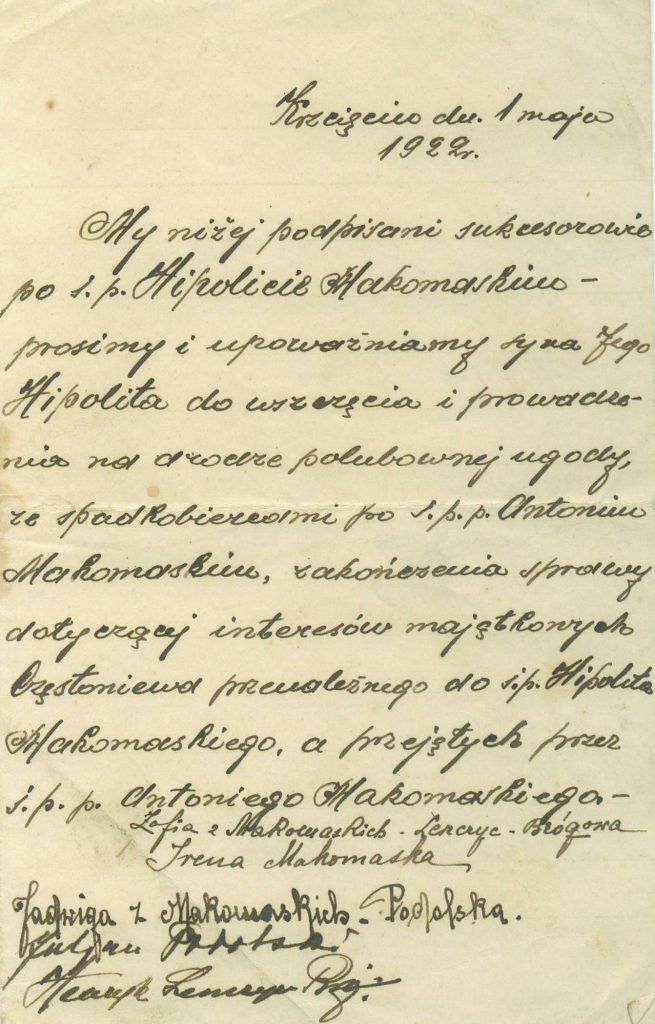 Krzcięcino dn. 1 maja
1922r.
My niżej podpisani sukcesorowie
po ś. p. Hipolicie Makomaskim –
prosimy i upoważniamy syna Jego
Hipolita do wszczęcia i prowadze-
nia na drodze polubownej ugody,
ze spadkobiercami po ś. p. p. Antonim
Makomaskim, zakończenia sprawy
dotyczącej interesów majątkowych
Częstoniewa przenależnego do ś.p. Hipolita
Makomaskiego, a przejętych przez
ś. p. p. Antoniego Makomaskiego –
Zofia z Makomaskich - Łenczyc - Brógowa
Irena Makomaska
Jadwiga z Makomaskich - Podolska.
Juljan Podolski
Henryk